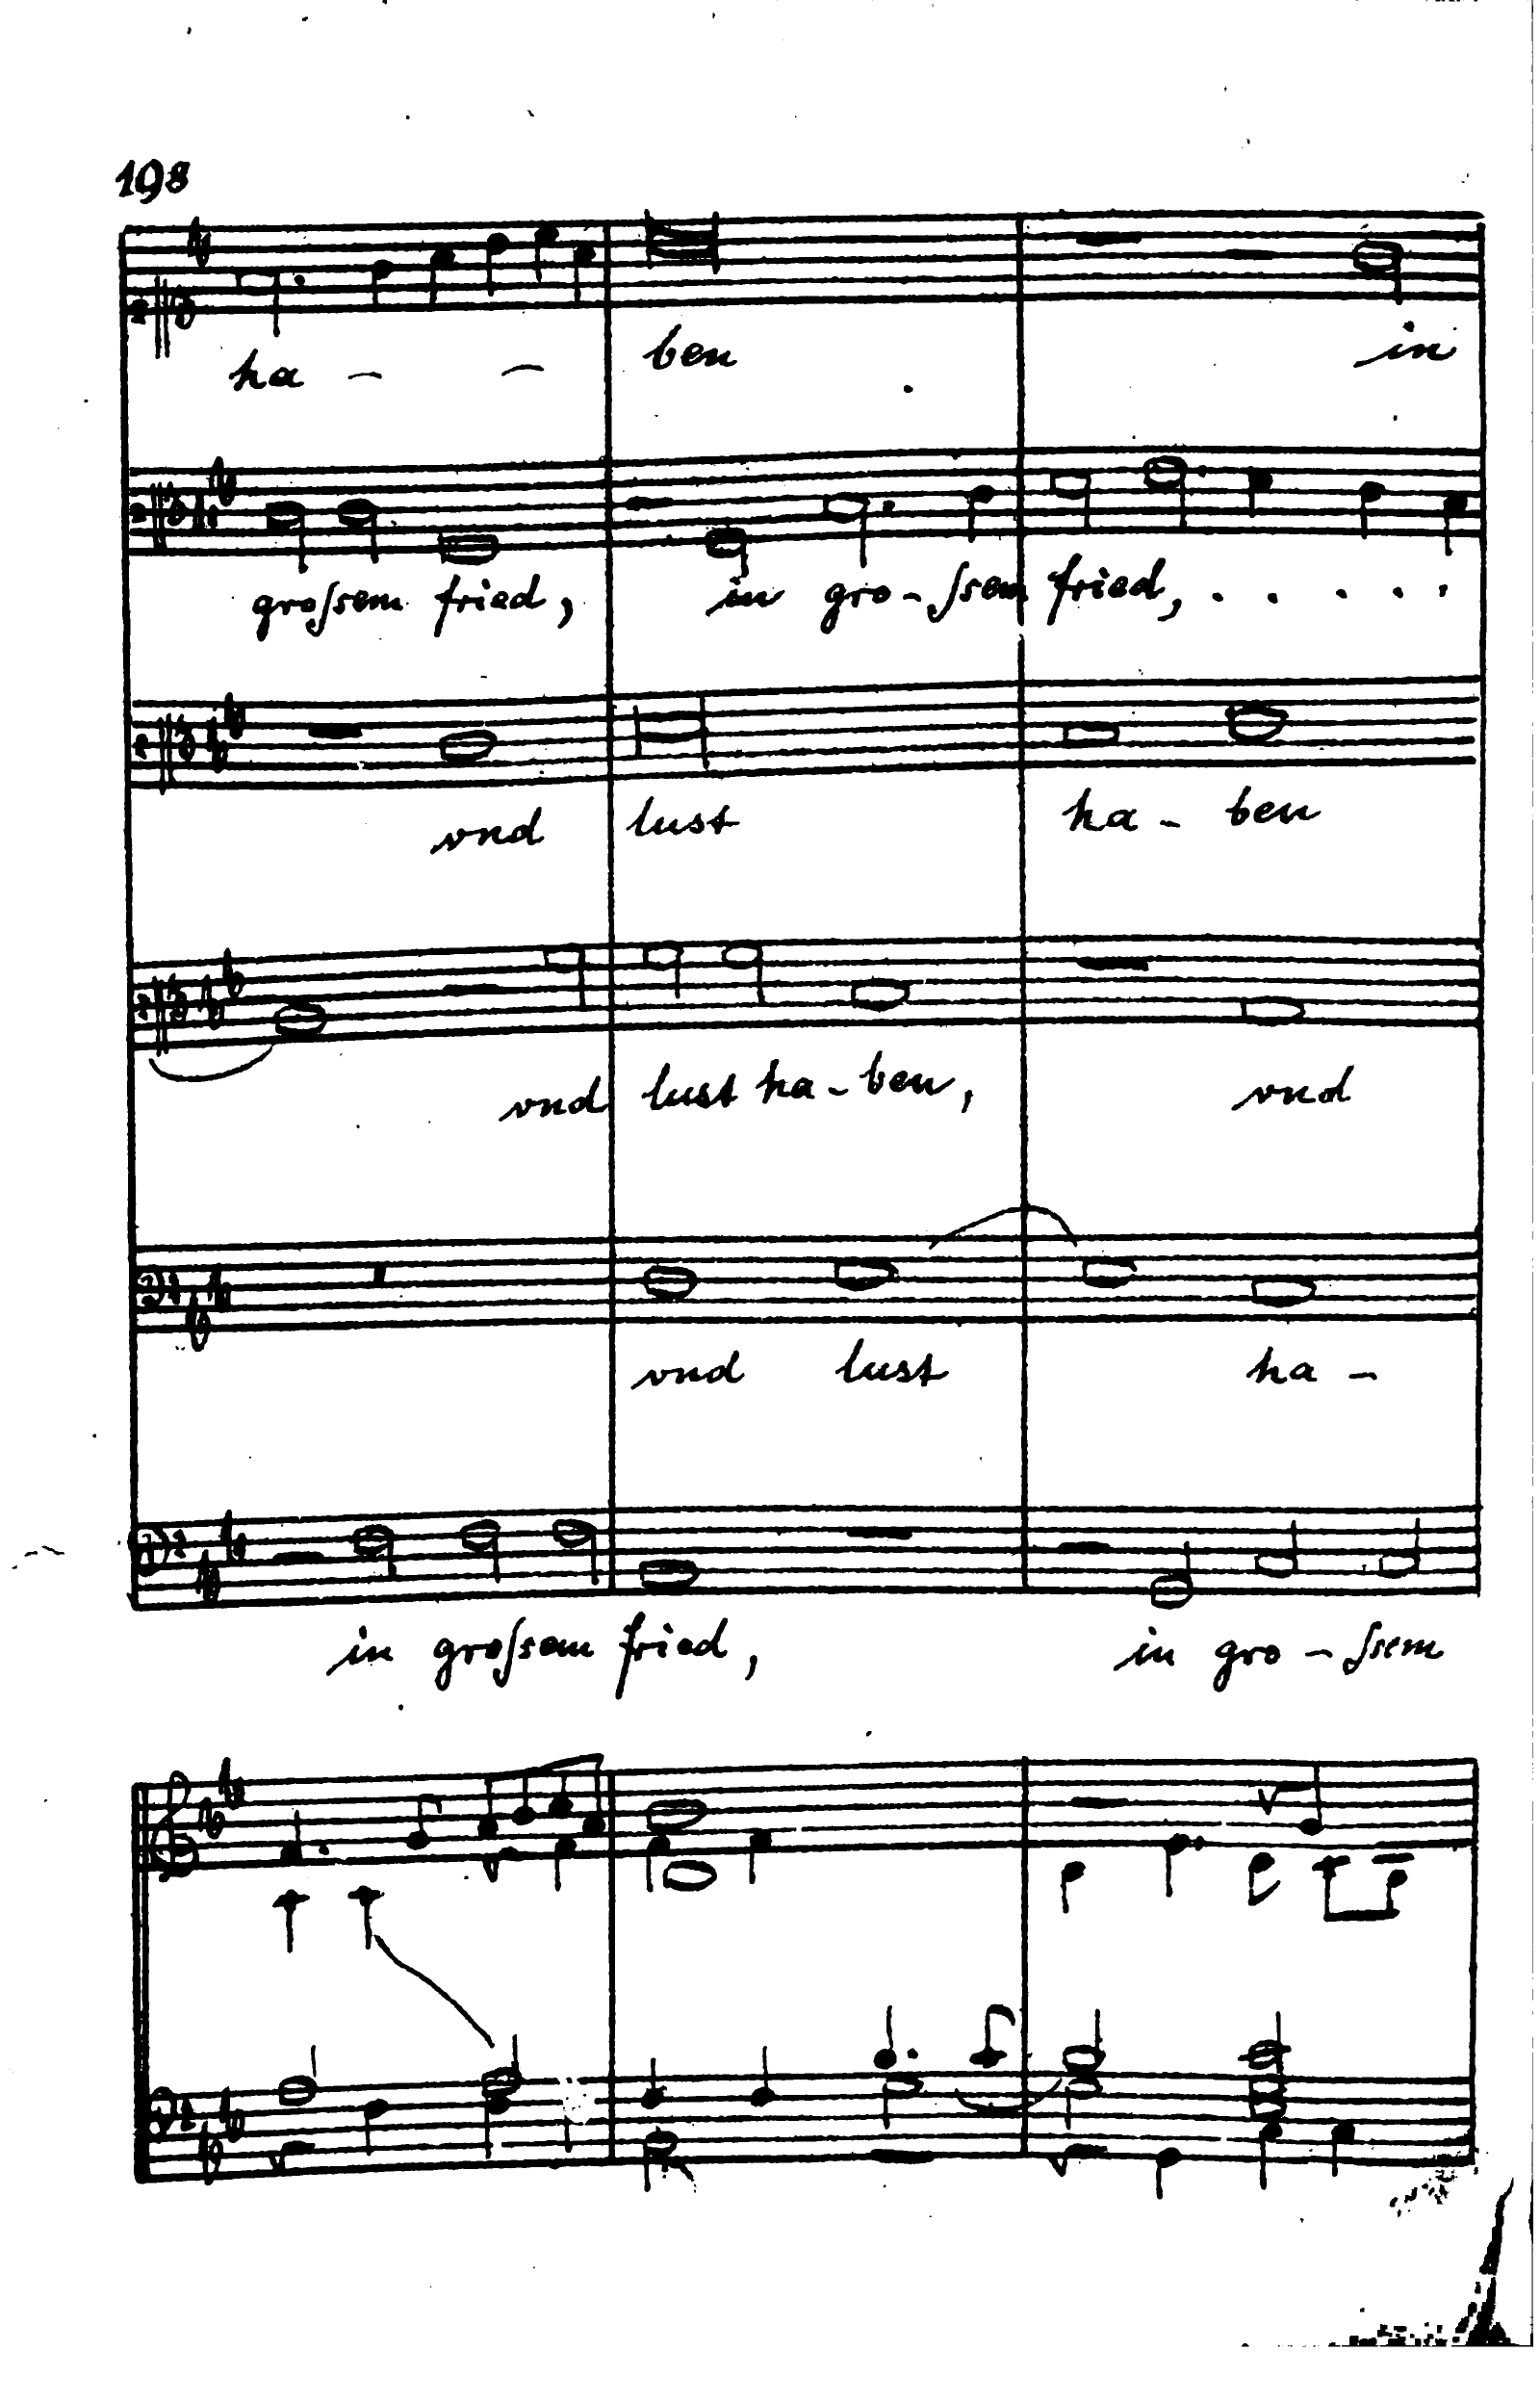 198
ha - - ben in
grossem fried, in gro-ssem fried, . . . . .
vnd lust ha- ben
vnd lust ha-ben, vnd
vnd lust ha -
in grossem fried, in gro-ssem